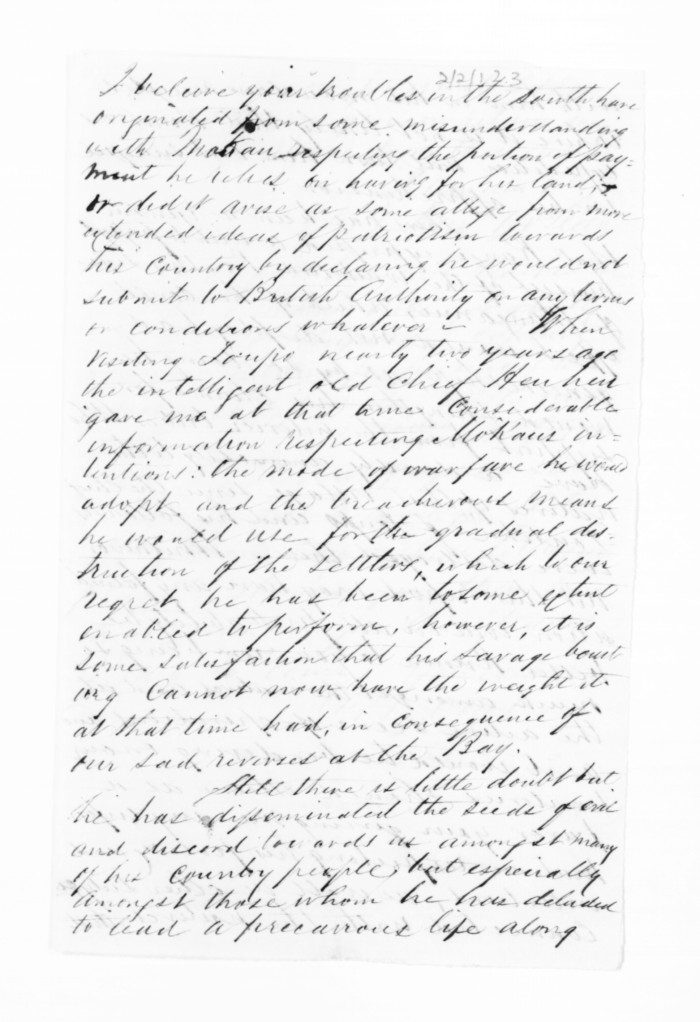 2/2/123
I beleive your troubles in the south have
originated from some misunderstanding
with Mokau respecting the portion of pay=
ment he relies on having for his land,
or did it arise as some allege from more
extended ideas of patriotism towards
his Country by declaring he would not
submit to British Authority on any terms
or conditions whatever – When
visiting Taupo nearly two years ago
the intelligent old Chief Heu heu
gave me at that time Considerable
information respecting Mokaus in=
tentions: the mode of warfare he would
adopt and the treacherous means
he would use for the gradual des=
truction of the settlers, which to our
regret he has been to some extent
enabled to perform, however, it is
some satisfaction that his savage boast
ing Cannot now have the weight it
at that time had, in consequence of
our sad reverses at the Bay.
Still there is little doubt but
he has disseminated the seeds of evil
and discord towards us amongst many
of his Country people, but especially
amongst those whom he has deluded
to lead a precarious life along